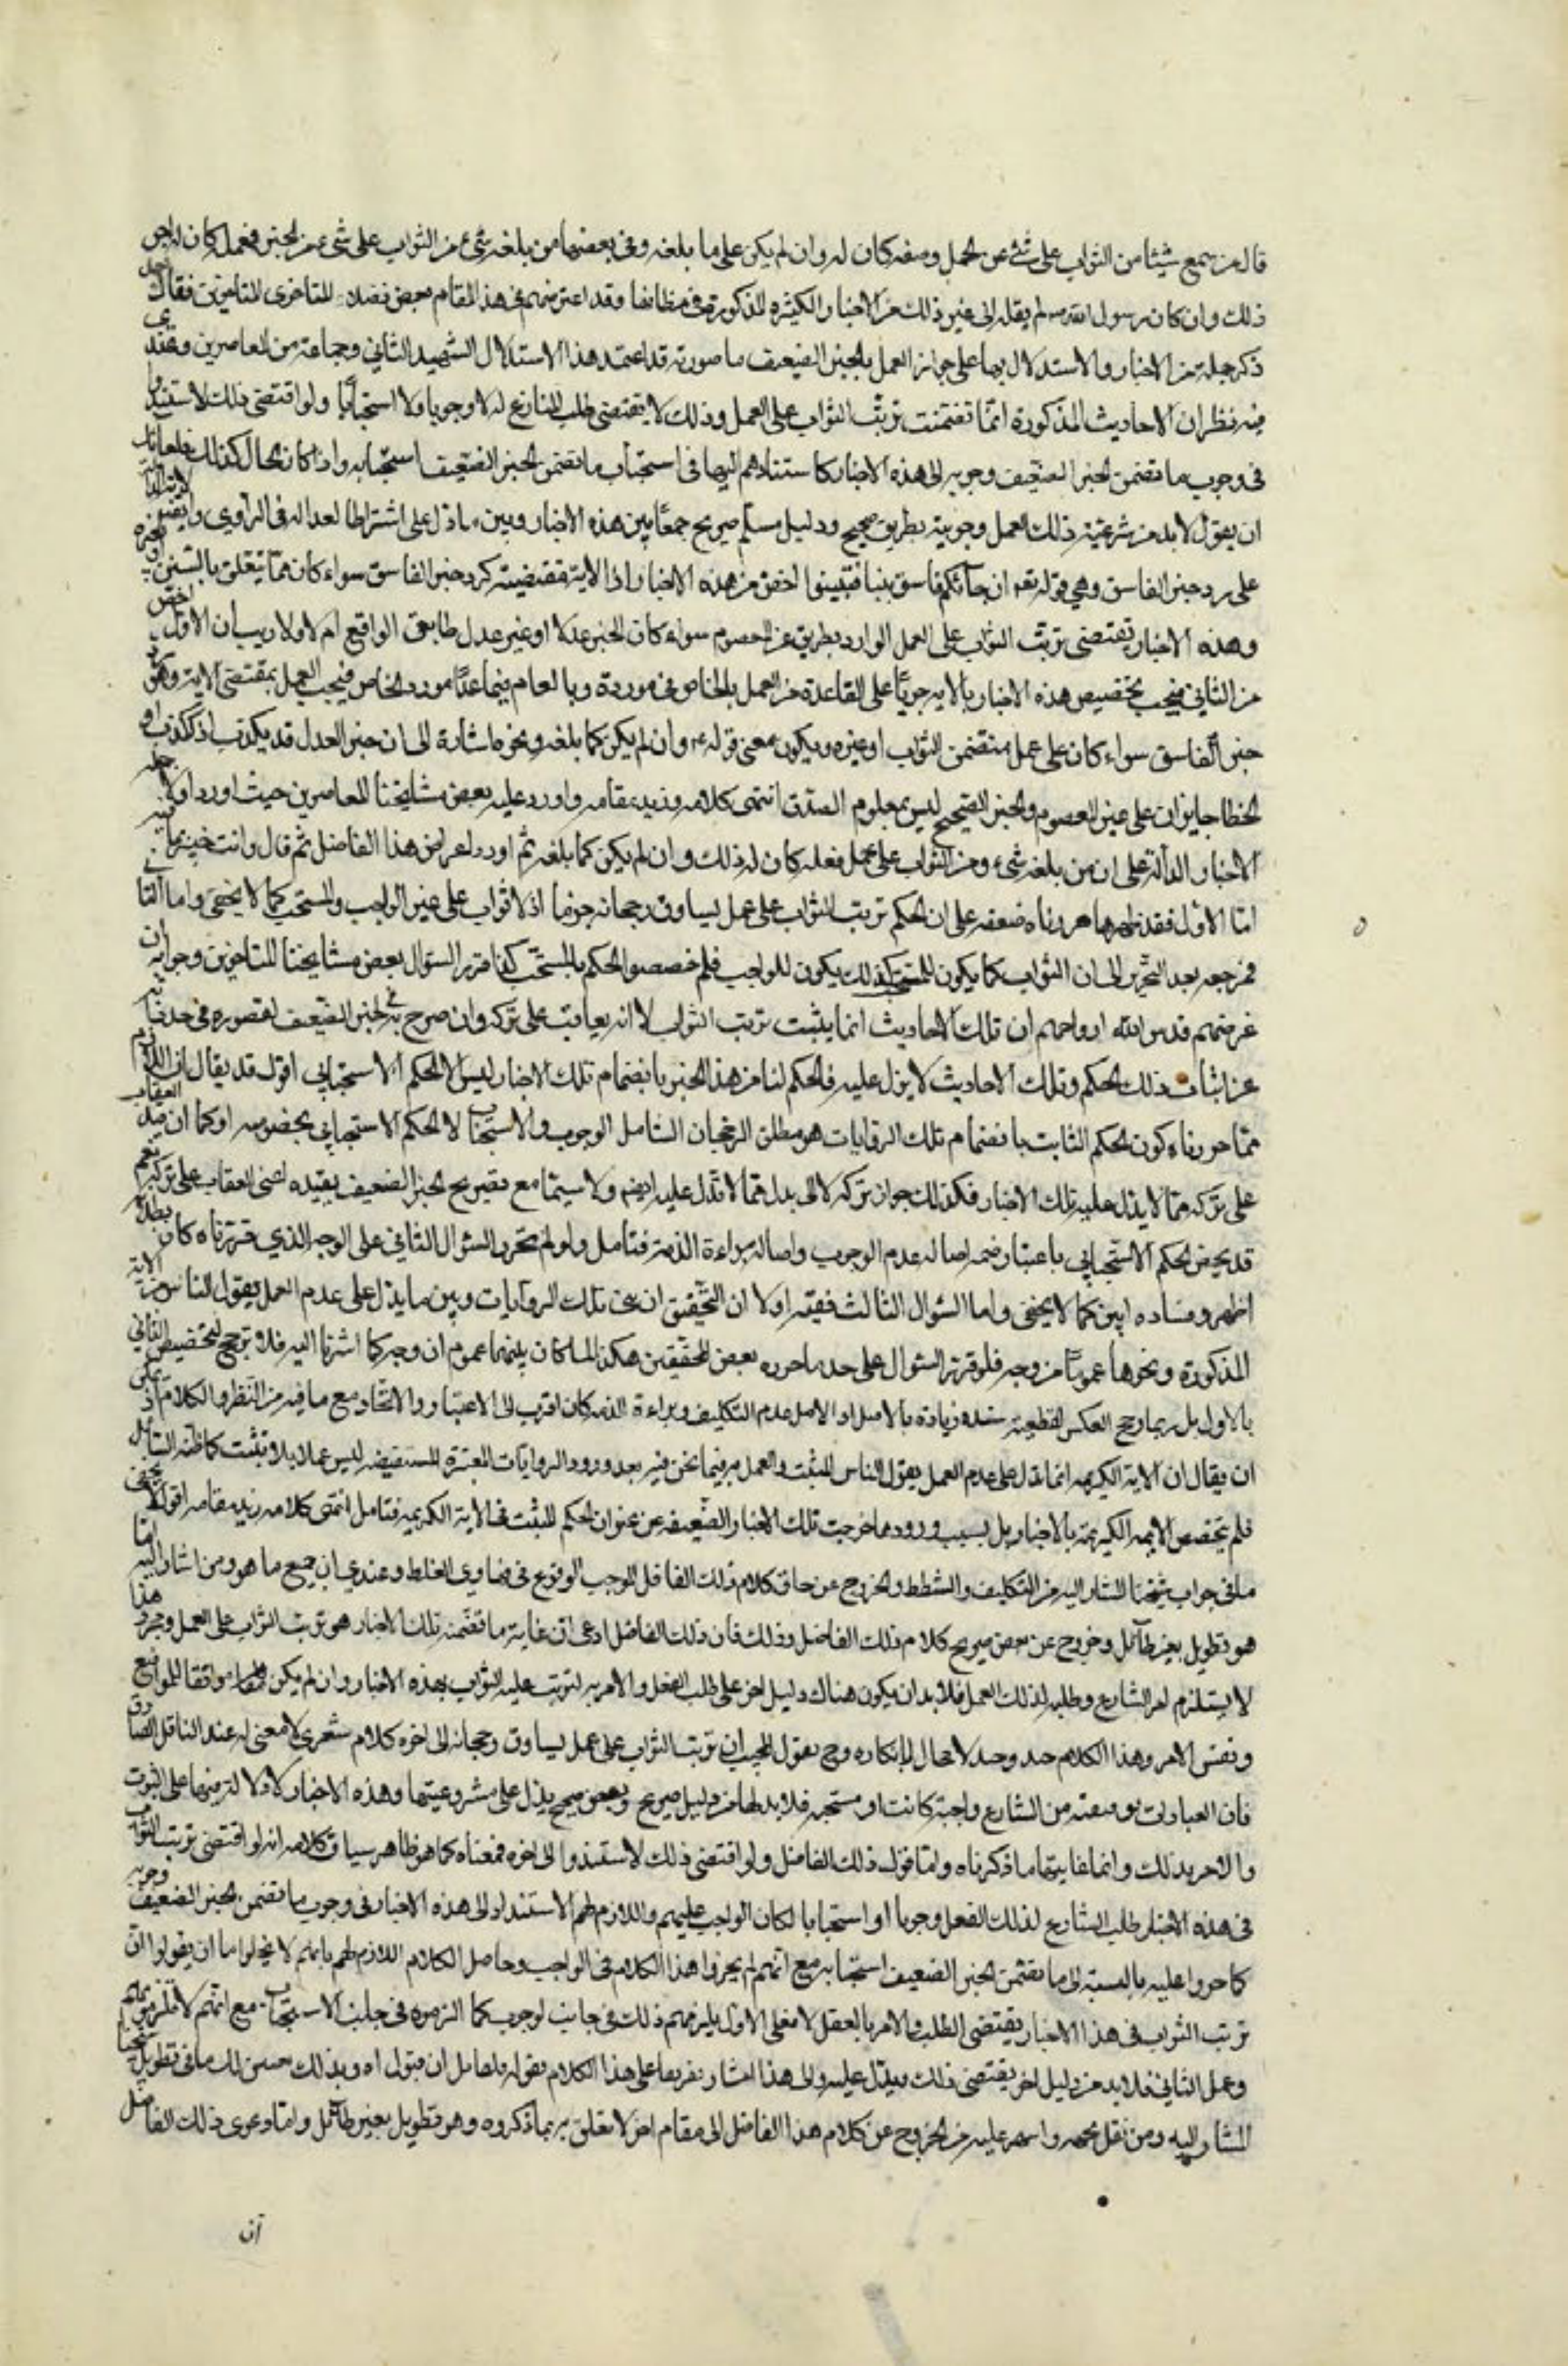 قال من سمع شيئا من الثواب على شئ عن الحمل وصفه كان له وان لم يكن على ما بلغه وفي بعضها من بلغه شئ من الثواب على شئ من الخير فعمله كان له اجر
ذلك وان كان رسول الله ص لم يقله الى غير ذلك من الاخبار الكثيره المذكورة في مظانها وقد اعترضهم في هذا المقام بعض فضلاء المتاخرى المتاخرين فقال بعد
ذكر جملة من الاخبار والاستدلال بها على جواز العمل بالخبر الضعيف ما صورته قد اعتمد هذا الاستدلال الشهيد الثاني وجماعة من المعاصرين وعندي
فيه نظر ان الاحاديث المذكورة انما تضمنت ترتب الثواب على العمل وذلك لا يقتضى طلب الشارع له لا وجوبا ولا استحبابا ولو اقتضى ذلك لاستندوا
في وجوب ما تضمن الخبر الضعيف وجوبه الى هذه الاخبار كاستنادهم اليها في استحباب ما تضمن الخبر الضعيف استحبابه واذا كان الحال كذلك فلقائل
ان يقول لا بد من شرعية ذلك العمل وجوبية بطريق صحيح ودليل مسلم صريح جمعا بين هذه الاخبار وبين ما دل على اشتراط العدالة في الراوي وايضا الاية الدالة
على رد خبر الفاسق وهي قوله تعه ان جائكم فاسق بنبا فتبينوا اخص من هذه الاخبار اذ الاية مقتضية لرد خبر الفاسق سواء كان مما يتعلق بالسنن او غيره
وهذه الاخبار تقتضى ترتب الثواب على العمل الوارد بطريق عن المعصوم سواء كان الخبر عدلا او غير عدل طابق الواقع ام لا ولا ريب ان الاول اخص
من الثاني فيجب تخصيص هذه الاخبار بالايه جريا على القاعدة من العمل بالخاص في مورده وبالعام فيما عدا مورد الخاص فيجب العمل بمقتضى الاية وهو رد
خبر الفاسق سواء كان على عمل متضمن الثواب او غيره ويكون معنى قوله ع وان لم يكن كما بلغه ونحوه اشارة الى ان خبر العدل قد يكذب اذ الكذب او
الخطا جايزان على غير المعصوم والخبر الصحيح ليس بمعلوم الصدق انتهى كلامه وزيد مقامه واورد عليه بعض مشايخنا المعاصرين حيث اورد اولا جملة
الاخبار الدالة على ان من بلغه شئ من الثواب على عمل ففعله كان له ذلك وان لم يكن كما بلغه ثم اورد اعراض هذا الفاضل ثم قال وانت خبير بما فيه
اما الاول فقد ظهر مما حررناه ضعفه على ان الحكم ترتب الثواب على عمل يساوق رجحانه جزما اذ لا ثواب على غير الواجب والمستحب كما لا يخفى واما الثاني
فمرجعه بعد التحرير الى ان الثواب كما يكون للمستحب كذلك يكون للواجب فلم خصصوا الحكم بالمستحب كذا قرر السؤال بعض مشايخنا المتاخرين وجوابه ان
غرضهم قدس الله ارواحهم ان تلك الاحاديث انما يثبت ترتب الثواب لا انه يعاقب على تركه وان صرح به في الخبر الضعيف لقصوره في حد ذاته
عن اثبات ذلك الحكم وتلك الاحاديث لا يدل عليه فالحكم لنا من هذا الخبر بانضمام تلك الاخبار ليس الا الحكم الاستحبابي اقول قد يقال ان اللازم
مما حررناه كون الحكم الثابت بانضمام تلك الروايات هو مطلق الرجحان الشامل الوجوب والاستحباب لا الحكم الاستحبابي بخصوصه او كما ان قيد العقاب
على تركه مما لا يدل عليه تلك الاخبار فكذلك جواز تركه لا الى بدل مما لا تدل عليه ايضا ولا سيما مع تصريح الخبر الضعيف بقيده اعنى العقاب على تركه نعم
قد يخص الحكم الاستحبابي باعتبار ضم اصالة عدم الوجوب واصالة براءة الذمة فتامل ولو لم تحرر السؤال الثاني على الوجه الذي قررناه كان بطلانه
اظهر وفساده ابين كما لا يخفى واما السؤال الثالث ففيه اولا ان التحقيق ان بين تلك الروايات وبين ما يدل على عدم العمل بقول الفاسق من الاية
المذكورة ونحوها عموما من وجه فلو قرر السؤال على حد ما حرره بعض المحققين هكذا لما كان بينهما عموم من وجه كما اشرنا اليه فلا ترجيح لتخصيص الثاني
بالاول بل ربما رجح العكس لقطعية سنده وزيادة بالاصل اذ الاصل عدم التكليف وبراءة الذمه كان اقرب الى الاعتبار والاتحاد مع ما فيه من النظر والكلام اذ يمكن
ان يقال ان الاية الكريمه انما تدل على عدم العمل بقول الفاسق بلا تثبت والعمل به فيما نحن فيه بعد ورود الروايات المعتبرة المستفيضه ليس عملا بلا تثبت كما ظنه السائل
فلم يتخصص الاية الكريمة بالاخبار بل بسبب ورودها خرجت تلك الاخبار الضعيفه عن عنوان الحكم المثبت في الاية الكريمة فتامل انتهى كلامه زيد مقامه اقول لا يخفى
ما في جواب شيخنا المشار اليه من التكليف والشطط والخروج عن حاق كلام ذلك الفاضل الموجب الوقوع في مهاوى الغلط وعندي ان جميع ما هو ومن اشار اليه
هو تطويل بغير طائل وخروج عن صريح كلام ذلك الفاضل وذلك فان ذلك الفاضل ادعى ان غاية ما تضمنه تلك الاخبار هو ترتب الثواب على العمل ومجرد هذا
لا يستلزم امر الشارع وطلبه لذلك العمل فلا بد ان يكون هناك دليل اخر على طلب الفعل والامر به لترتب عليه الثواب بهذه الاخبار وان لم يكن موافقا للواقع
ونفس الامر وهذا الكلام جيد وجيه لا مجال لانكاره وح يقول المجيب ان ترتب الثواب على عمل يساوق رجحانه الى اخره كلام شعري لا معنى له عند الناقل الصادق
فان العبادات توقيفية من الشارع واجبة كانت او مستحبه فلا بد لها من دليل صريح ونص صحيح يدل على مشروعيتها وهذه الاخبار لا دلالة فيها على الثبوت
والامر بذلك وانما غايتها ما ذكرناه واما قول ذلك الفاضل ولو اقتضى ذلك لاستندوا الى اخره فمعناه كما هو ظاهر سياق كلامه انه لو اقتضى ترتب الثواب
في هذه الاخبار طلب الشارع لذلك الفعل وجوبا او استحبابا لكان الواجب عليهم واللازم لهم الاستناد الى هذه الاخبار في وجوب ما تضمن الخبر الضعيف وجوبه
كما جروا عليه بالنسبة الى ما تضمن الخبر الضعيف استحبابه مع انهم لم يجروا هذا الكلام في الواجب وحاصل الكلام اللازم لهم بانهم لا يخلو اما ان يقولوا ان
ترتب الثواب في هذا الاخبار يقتضى الطلب والامر بالفعل ام لا فعلى الاول يلزمهم ذلك في جانب الوجوب كما الزموه في جانب الاستحباب مع انهم لا يلتزمونه
وعلى الثاني فلا بد من دليل اخر يقتضى ذلك ويدل عليه والى هذا اشار تفريعا على هذا الكلام بقوله فلقائل ان يقول اه وبذلك حسن لك ما في تطويل شيخنا
المشار اليه ومن نقل عنه واسهم عليه من الخروج عن كلام هذا الفاضل الى مقام اخر لا تعلق به بما ذكروه وهو تطويل بغير طائل واما دعوى ذلك الفاضل
ان